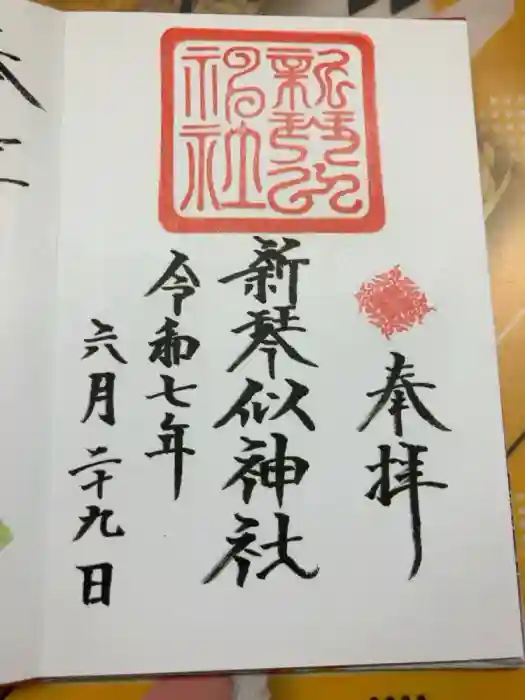 奉拝
新琴似神社
令和七年
六月二十九日
新琴似
神社